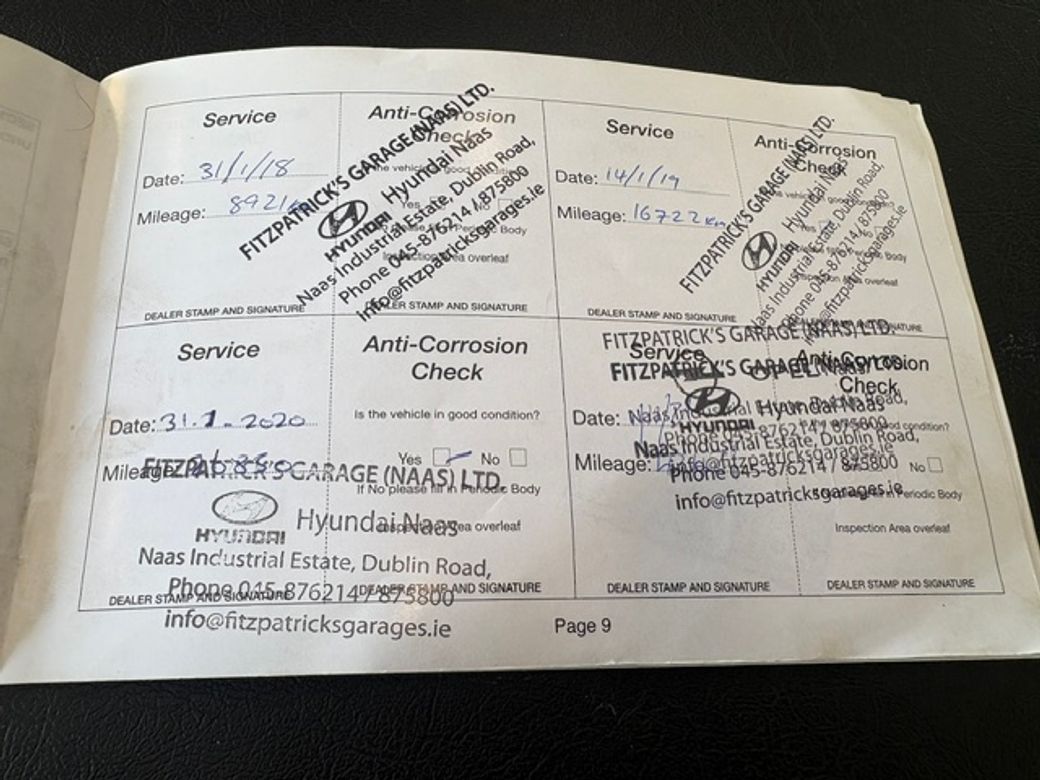 Service
Anti-Corrosion
Check
Date: 31/1/18
Mileage: 8921
the vehicle good
Yes No
Periodic Body
Inspection Area overleaf
FITZPATRICK'S GARAGE (NAAS) LTD.
HYUNDAI Hyundai Naas
Naas Industrial Estate, Dublin Road,
Phone 045-876214 / 875800
info@fitzpatricksgarages.ie
DEALER STAMP AND SIGNATURE
DEALER STAMP AND SIGNATURE
Service
Anti-Corrosion
Check
Date: 14/1/19
Mileage: 16722 km
Yes
Periodic Body
Inspection Area overleaf
FITZPATRICK'S GARAGE (NAAS) LTD.
HYUNDAI Hyundai Naas
Naas Industrial Estate, Dublin Road,
Phone 045-876214 / 875800
info@fitzpatricksgarages.ie
DEALER STAMP AND SIGNATURE
SIGNATURE
Service
Anti-Corrosion
Check
Date: 31.1.2020
Is the vehicle in good condition?
Mileage:
Yes No
If No please fill in Periodic Body
Inspection Area overleaf
FITZPATRICK'S GARAGE (NAAS) LTD.
HYUNDAI Hyundai Naas
Naas Industrial Estate, Dublin Road,
Phone 045-876214 / 875800
info@fitzpatricksgarages.ie
DEALER STAMP AND SIGNATURE
DEALER STAMP AND SIGNATURE
FITZPATRICK'S GARAGE (NAAS) LTD.
Service
Anti-Corrosion
Check
FITZPATRICK'S GARAGE (NAAS) LTD.
OPEL
Date:
HYUNDAI Hyundai Naas
condition?
Mileage:
Naas Industrial Estate, Dublin Road,
Phone 045-876214 / 875800
No
info@fitzpatricksgarages.ie
Periodic Body
Inspection Area overleaf
DEALER STAMP AND SIGNATURE
DEALER STAMP AND SIGNATURE
Page 9